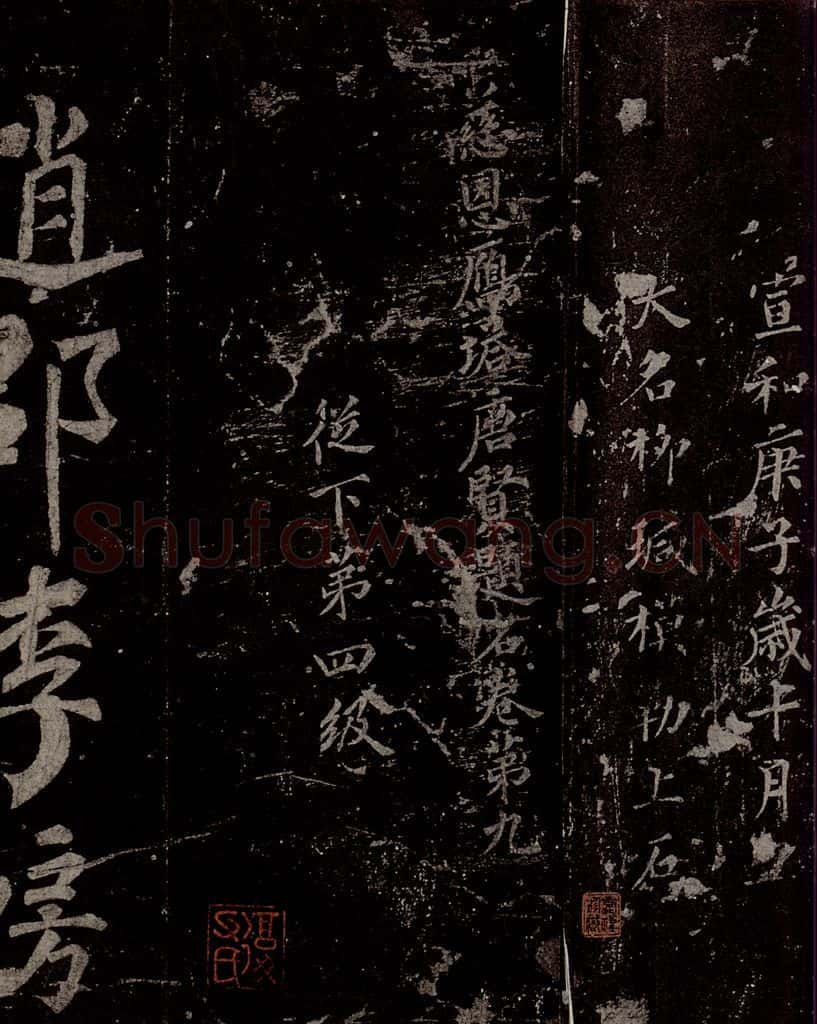 宣和庚子歲十月
大名柳瑊模刊上石
慈恩鴈塔唐賢題名卷第九
從下第四級
逍
李
房
Shufawang.CN